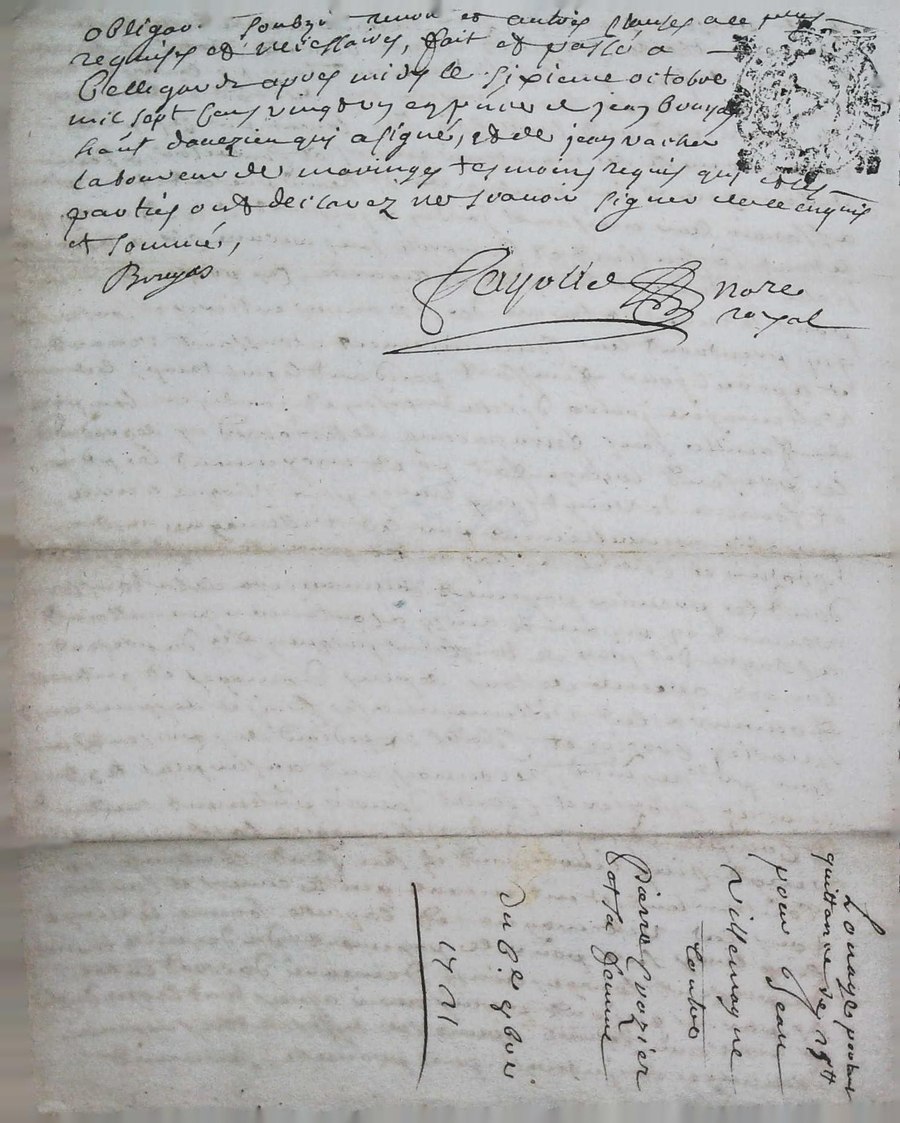 obligaõn soubz renon et autres clauses a ce plus
requises et necessaires, fait et passé a
Bellegarde apres midy le sixieme octobre
mil sept cens vingt un en presence de jean
haut qui a signé, et de jean vacher
laboureur de maringes tesmoins requis qui et les
parties ont declarez ne scavoir signer de ce enquis
et sommé,
Bouyas
Fayolle nore
royal
quittance de
pour Jean
Villemagne
Contre
Pierre Crozier
et sa femme
du 6e 8bre
1721